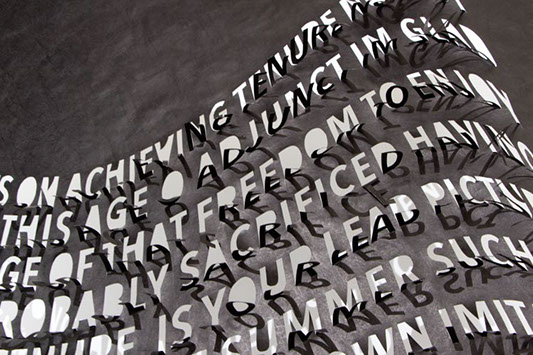 S ON ACHIEVING TENURE
THIS AGE O ADJUNCT IM GLAD
GE OF THAT FREEDOM TO ENJOY
ROBABLY SACRIFICED HAVING
ENURE IS YOUR LEAD PICTU
SUMMER SUCH
OWN IMIT